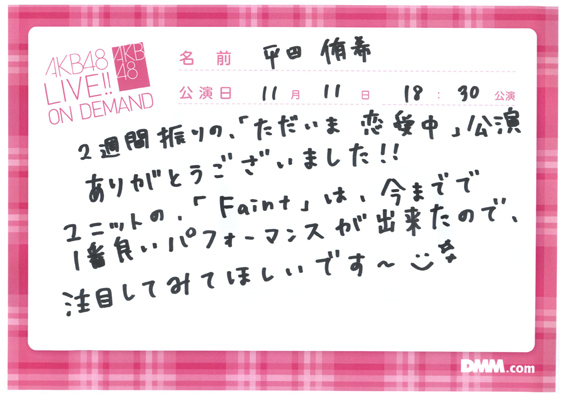 AKB48
LIVE!!
ON DEMAND
AKB
48
名前 平田 侑希
公演日 11月 11日 18:30 公演
2週間振りの、「ただいま 恋愛中」公演
ありがとうございました!!
ユニットの、「Faint」は、今までで
1番良いパフォーマンスが出来たので、
注目してみてほしいです〜
DMM.com